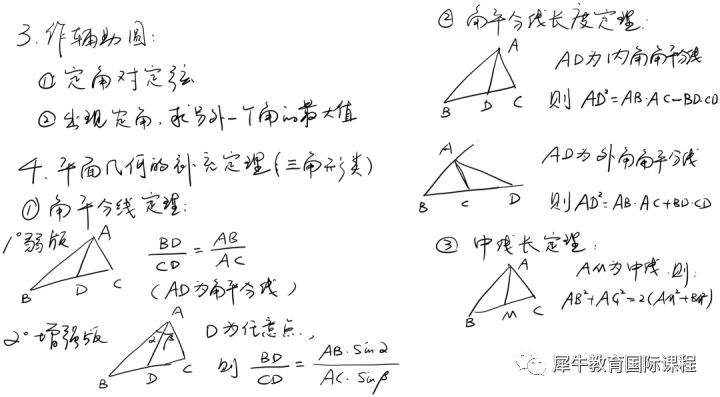 3. 作辅助圆:
① 定角对定弦
② 出现定角, 求另外一个角的最大值
4. 平面几何的补充定理(三角形类)
① 角平分线定理:
1° 弱版
A
B D C
BD/CD = AB/AC
(AD为角平分线)
2° 增强版
A
α β
B D C
D为任意点,
则 BD/CD = AB·sinα/AC·sinβ
② 角平分线长度定理:
A
B D C
AD为内角角平分线
则 AD²=AB·AC-BD·CD
A
B C D
AD为外角角平分线
则 AD²=AB·AC+BD·CD
③ 中线长定理:
A
B M C
AM为中线, 则:
AB²+AC²=2(AM²+BM²)
犀牛教育国际课程